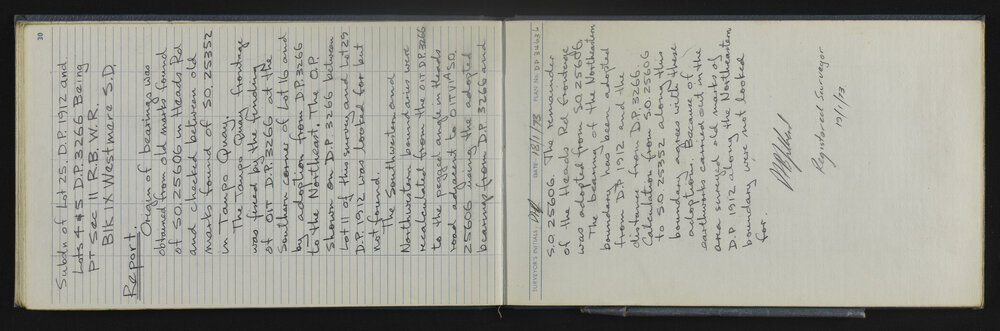 30
Subdn of Lot 25. D.P. 1912 and
Lots 4 & 5 D.P. 3266 Being
PT Sec 11 R.B.W.R.
Blk IX Westmere S.D.
Report.
Origin of bearings was
obtained from old marks found
of S.O. 25606 in Heads Rd
and checked between old
marks found of S.O. 25352
in Taupo Quay.
The Taupo Quay frontage
was fixed by the finding
of OIT D.P. 3266 at the
Southern corner of Lot 16 and
by adoption from D.P. 3266
to the Northeast. The O.P.
shown on D.P. 3266 between
Lot 11 of this survey and Lot 25
D.P. 1912 was looked for but
not found.
The Southwestern and
Northwestern boundaries were
recalculated from the OIT D.P. 3266
to the pegged angle in Heads
road adjacent to OIT VIA S.O.
25606 using the adopted
bearings from D.P. 3266 and
SURVEYOR'S INITIALS: DATE 18/1/73 PLAN No. DP 34636
S.O 25606. The remainder
of the Heads Rd frontage
was adopted from S.O. 25606.
The bearing of the Northeastern
boundary has been adopted
from D.P. 1912 and the
distance from D.P. 3266
Calculation from S.O. 25606
to S.O 25352 along this
boundary agrees with these
adoptions. Because of
earthworks carried out in the
area several old marks of
D.P 1912 along the Northeastern
boundary were not looked
for.
Registered Surveyor
19/1/73